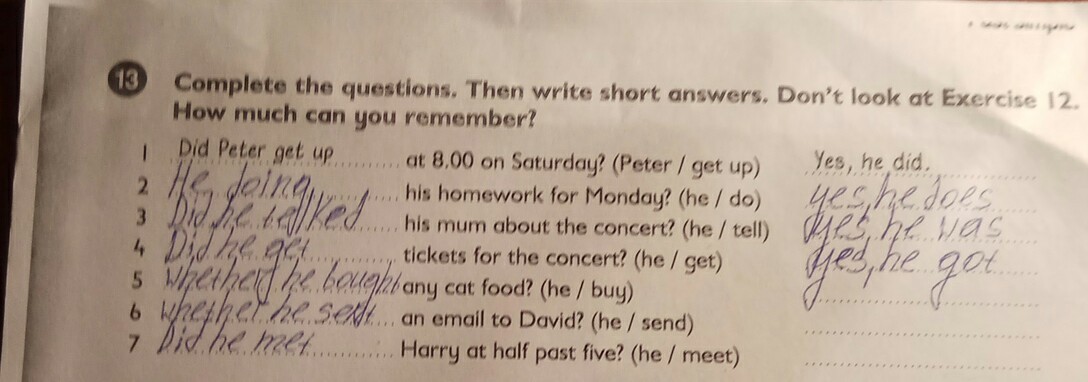 13 Complete the questions. Then write short answers. Don't look at Exercise 12.
How much can you remember?
1 Did Peter get up at 8.00 on Saturday? (Peter / get up) Yes, he did.
2 He doing his homework for Monday? (he / do) yes, he does
3 Did he telked his mum about the concert? (he / tell) yes, he was
4 Did he get tickets for the concert? (he / get) yes, he got
5 whether he bought any cat food? (he / buy)
6 whether he sent an email to David? (he / send)
7 Did he met Harry at half past five? (he / meet)